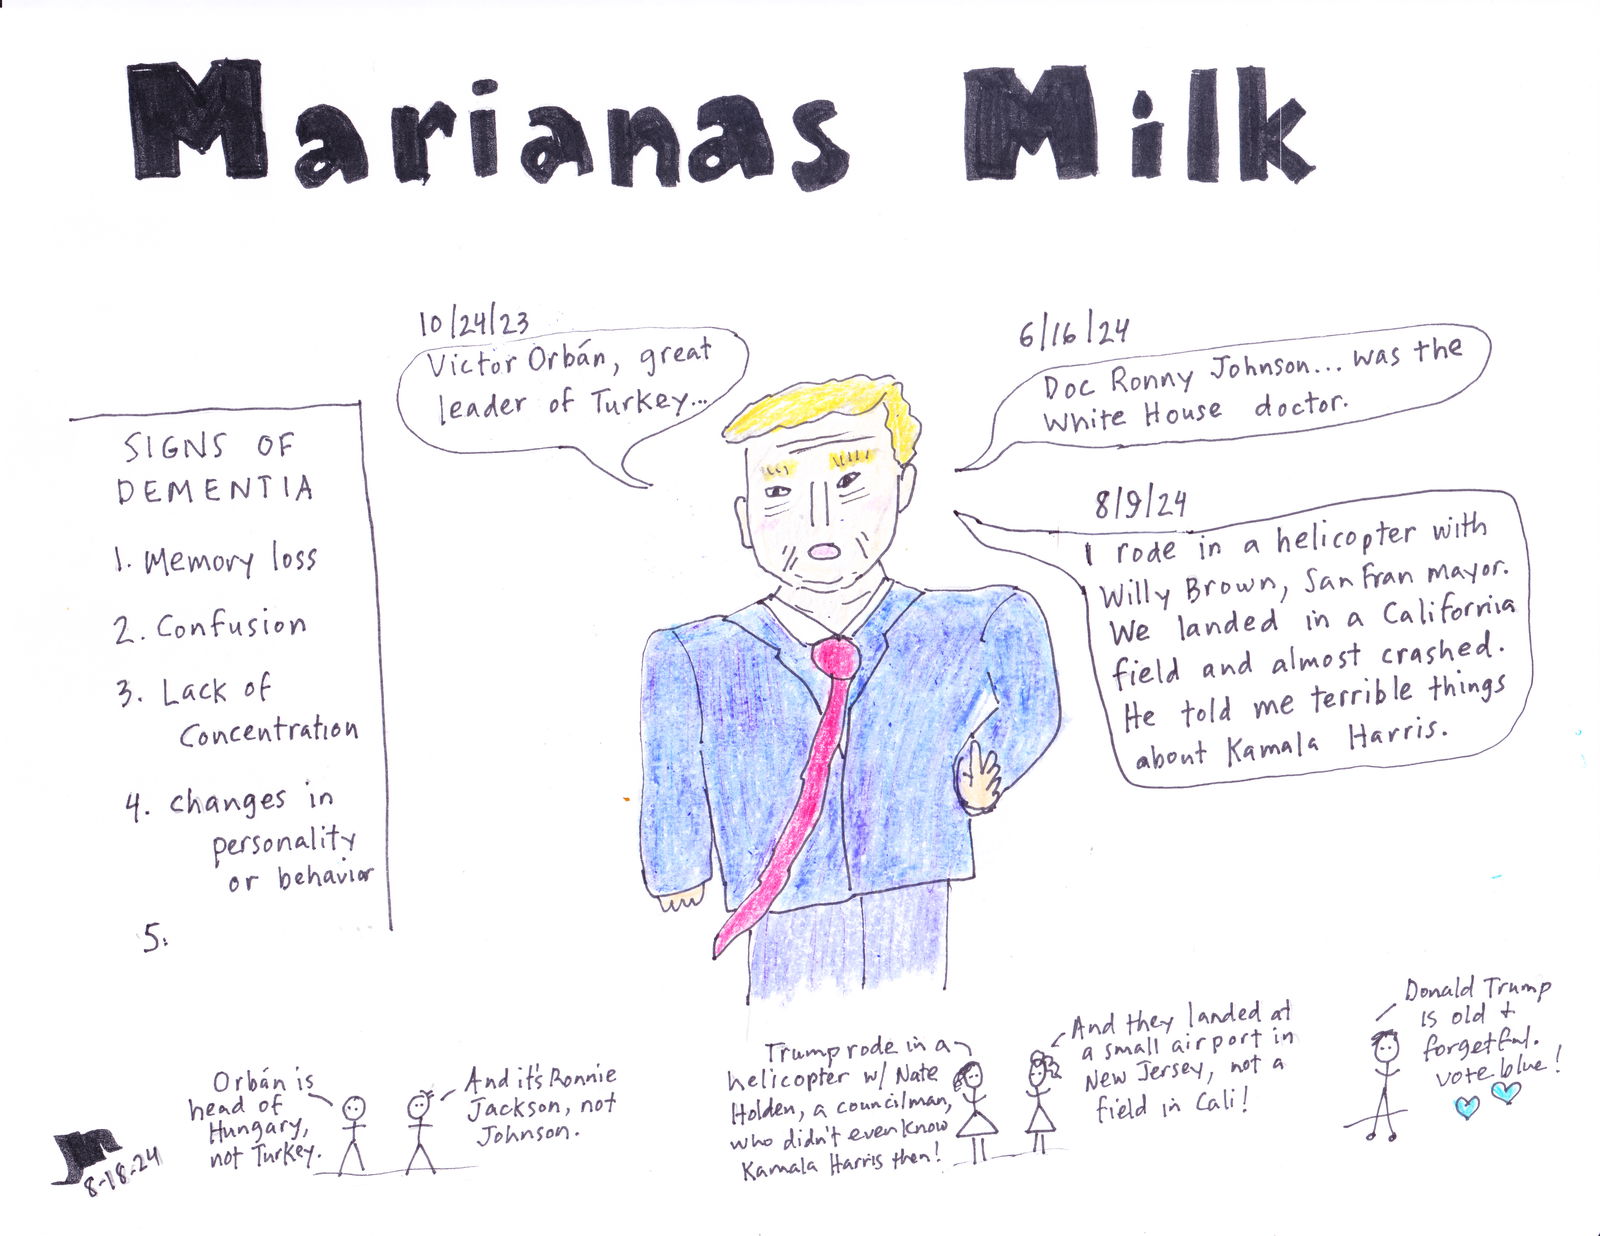 Marianas Milk
SIGNS OF
DEMENTIA
1. Memory loss
2. Confusion
3. Lack of
Concentration
4. changes in
personality
or behavior
5.
10/24/23
Victor Orbán, great
leader of Turkey...
6/16/24
Doc Ronny Johnson... was the
White House doctor.
8/9/24
I rode in a helicopter with
Willy Brown, San Fran mayor.
We landed in a California
field and almost crashed.
He told me terrible things
about Kamala Harris.
Orbán is
head of
Hungary,
not Turkey.
And it's Ronnie
Jackson, not
Johnson.
Trump rode in a
helicopter w/ Nate
Holden, a councilman,
who didn't even know
Kamala Harris then!
And they landed at
a small airport in
New Jersey, not a
field in Cali!
Donald Trump
is old +
forgetful.
vote blue!
8-18-24